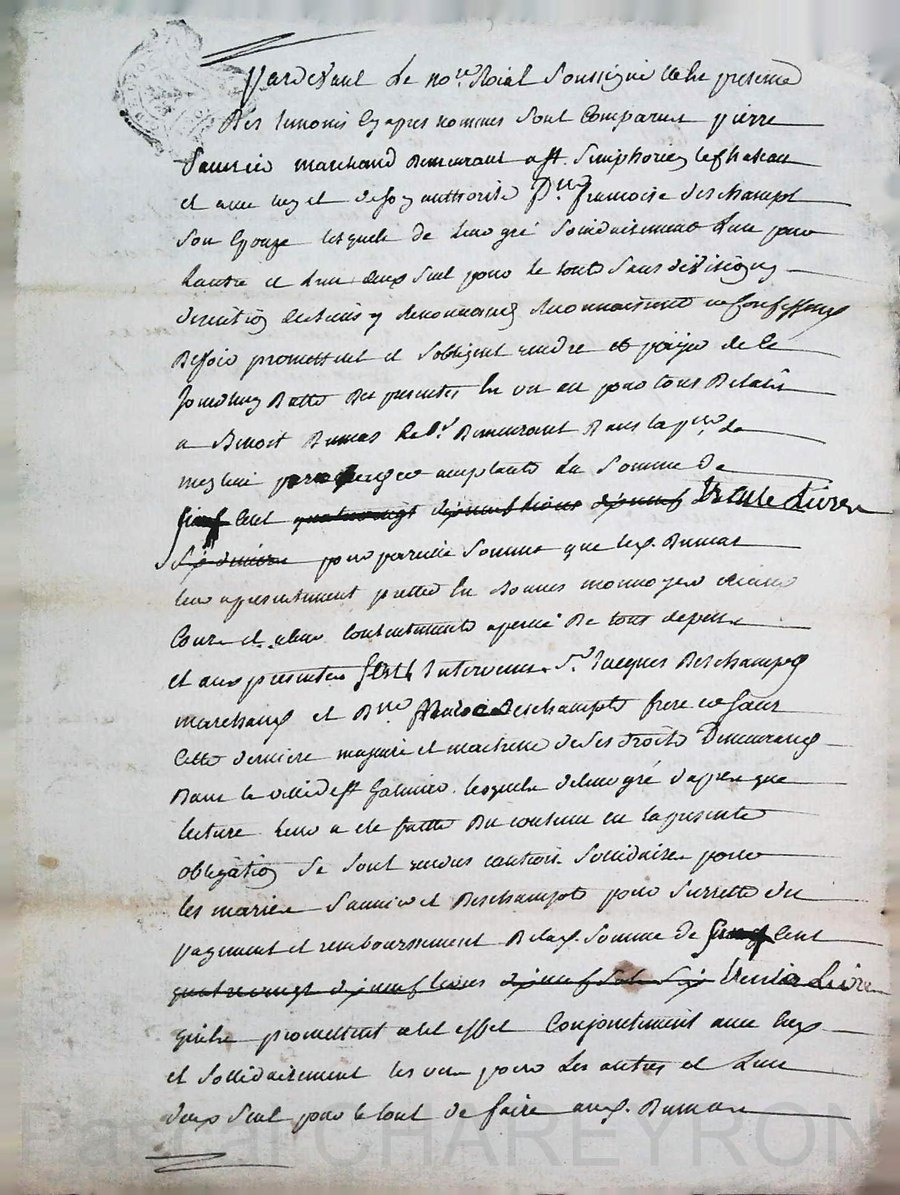 Pardevant Le no.re Roial Soussigné et En presence
Des temoins Cy apres nommes Sont Comparus pierre
marchand Demeurant a St. Simphorien le chateau
et avec luy et de soy authorisé D.lle francoise deschampt
Son Epouze lesquels de Leur gré Sollidairement L'un pour
Lautre et L'un deux Seul pour le tout Sans division
discution Renonceans Reconnaissent et Confessent
Devoir promettent et Sobligent rendre et païer de Ce
Jourdhuy Datte Des presentes En un an pour tous Delais
a Benoit Dumas Demeurant Dans la p.sse de
acceptante La Somme De
Cent quatrevingt dixneuf livres dixneuf trente Livres
Six deniers pour pareille Somme que led. Dumas
leur a presentement pretté En Bonnes monnoyes aiant
Cours et a leur Contentement a peine De tout depens
et aux presentes sont Intervenus S.r Jacques Deschampt
marchand et D.lle Deschampt frere et Sœur
Cette derniere majeure et maitresse de Ses droits Demeurants
Dans la ville de St Galmier lesquels de leur gré d'apres que
lecture Leur a eté faitte Du contenu en la presente
obligation Se Sont rendus cautions Sollidaires pour
les mariés et Deschampt pour Surretté du
payement et remboursement De lad. Somme de Cent
quatrevingt dixneuf livres dixneuf Sols Six trente Livres
qu'ils promettent a cet effet Conjointement avec Eux
et Sollidairement les uns pour Les autres et L'un
deux Seul pour le tout de faire aud. Dumas
Pascal CHAREYRON